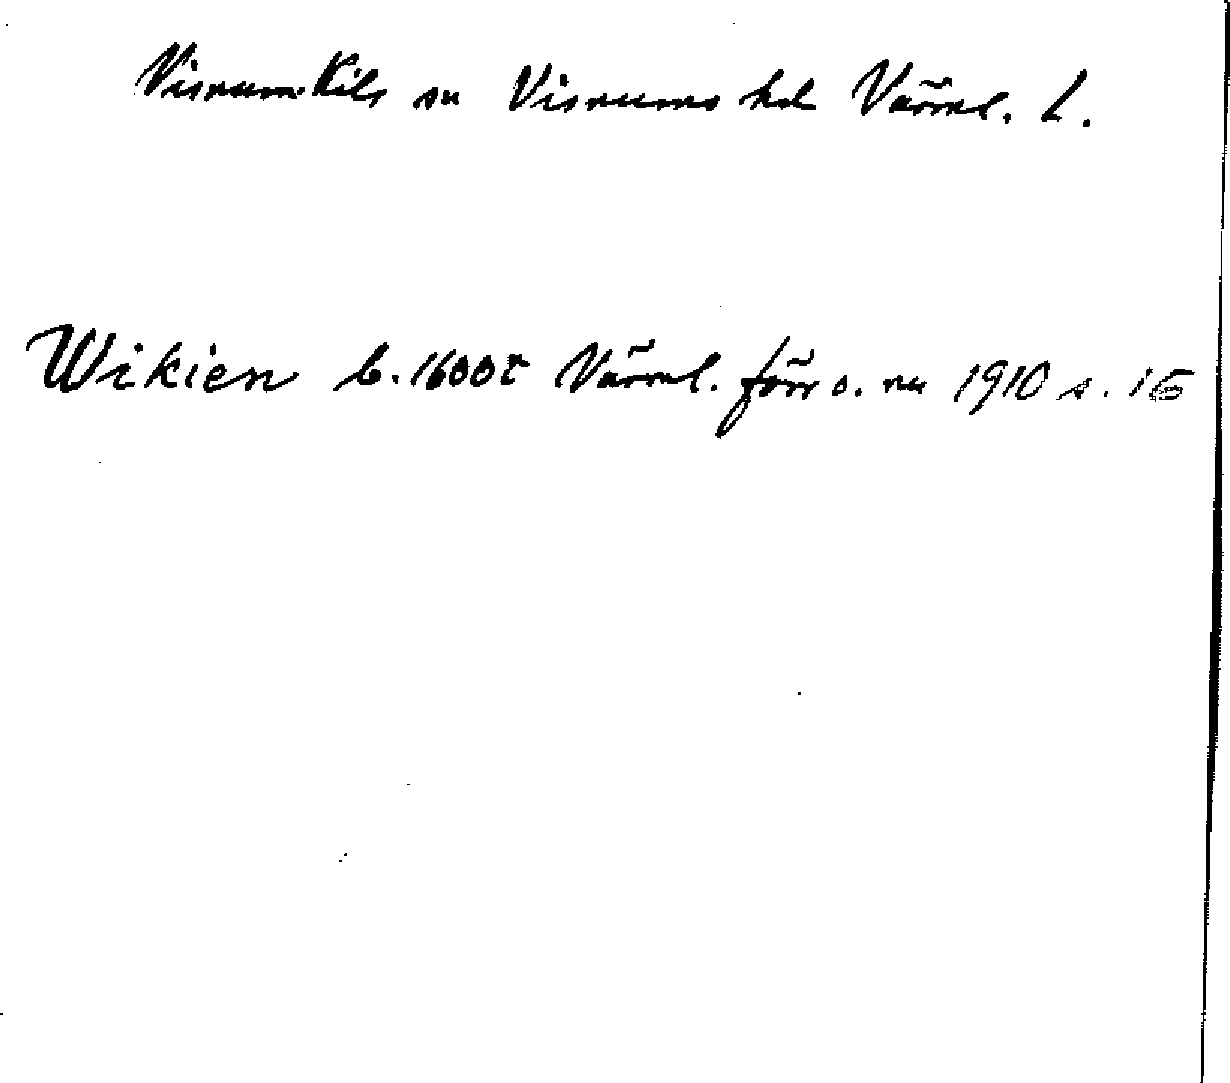 Visnum-Kils sn Visnums hd Värml. L.
Wikien b. 1600t Värml. förr o. nu 1910 s. 16